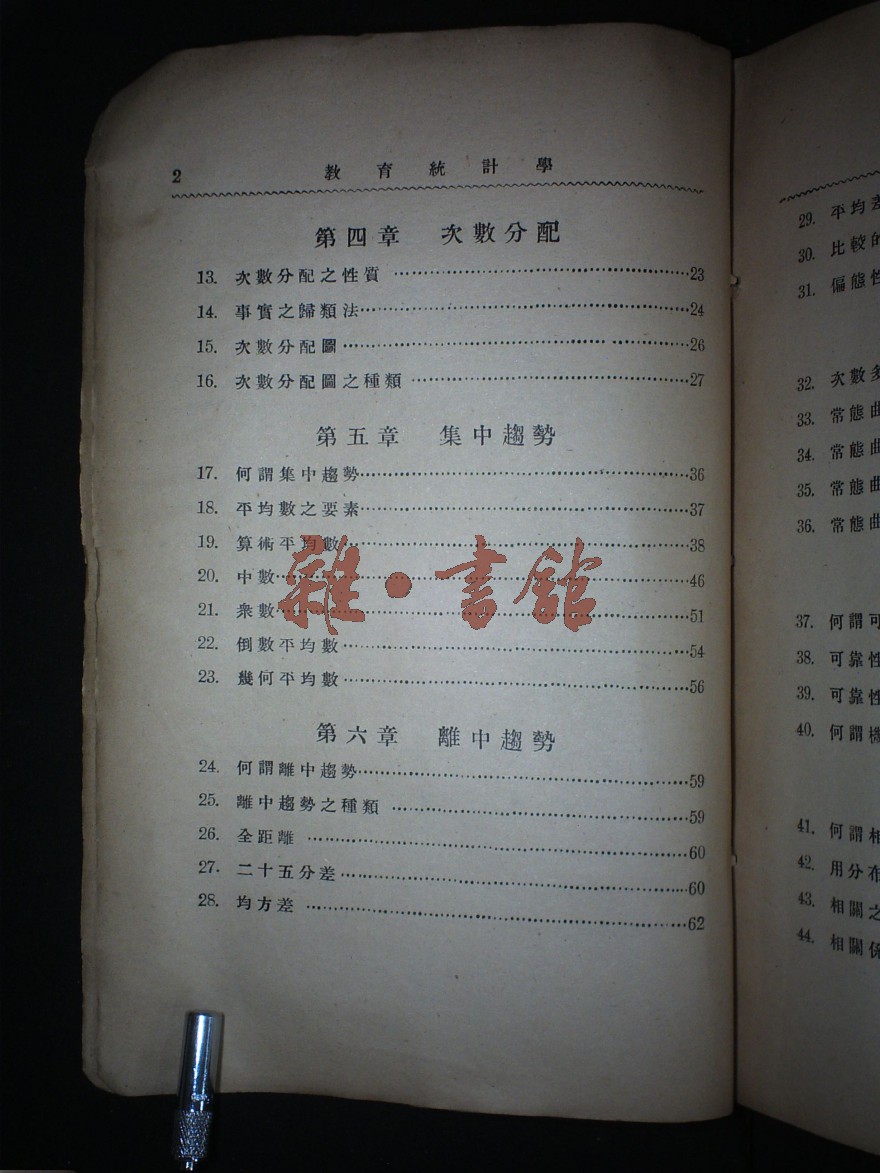 2 教育統計學
第四章 次數分配
13. 次數分配之性質 ……23
14. 事實之歸類法……24
15. 次數分配圖……26
16. 次數分配圖之種類……27
第五章 集中趨勢
17. 何謂集中趨勢……36
18. 平均數之要素……37
19. 算術平均數……38
20. 中數……46
21. 衆數……51
22. 倒數平均數……54
23. 幾何平均數……56
第六章 離中趨勢
24. 何謂離中趨勢……59
25. 離中趨勢之種類……59
26. 全距離……60
27. 二十五分差……60
28. 均方差……62
雜·書館
29. 平均差
30. 比較的
31. 偏態性
32. 次數多
33. 常態曲
34. 常態曲
35. 常態曲
36. 常態曲
37. 何謂可
38. 可靠性
39. 可靠性
40. 何謂機
41. 何謂相
42. 用分布
43. 相關之
44. 相關係